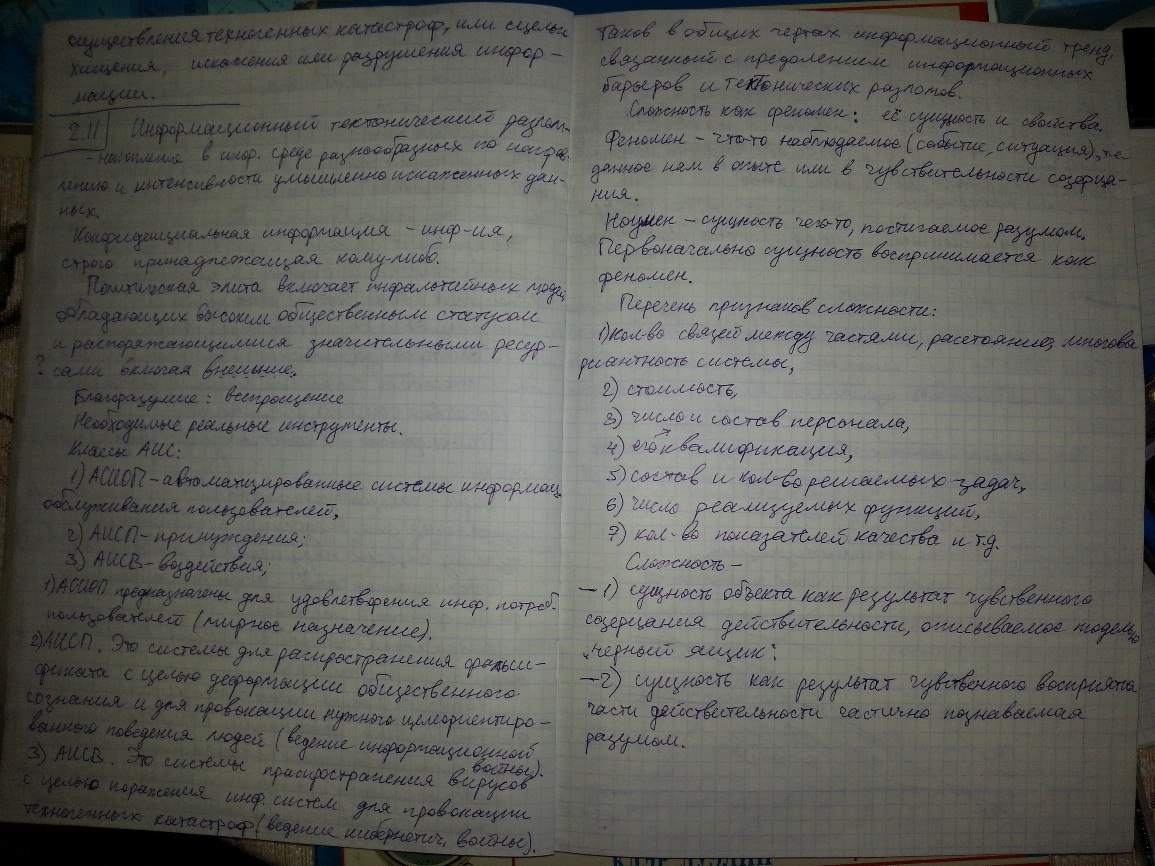 осуществления техногенных катастроф, или с целью
хищения, искажения или разрушения инфор-
мации.
2.11 Информационный тектонический разлом
- накопления в инф. среде разнообразных по направ-
лению и интенсивности умышленно искаженных дан-
ных.
Конфиденциальная информация - инф-ия,
строго принадлежащая кому-либо.
Политическая элита включает людей,
обладающих высоким общественным статусом
и распоряжающимися значительными ресур-
? сами включая внешние.
Благоразумие:
Необходимые реальные инструменты.
Классы АИС:
1) АСИОП - автоматизированные системы информац.
обслуживания пользователей,
2) АИСП - принуждения;
3) АИСВ - воздействия;
1) АСИОП предназначены для удовлетворения инф. потреб.
пользователей (мирное назначение).
2) АИСП. Это системы для распространения фальси-
фиката с целью деформации общественного
сознания и для провокации нужного целеориентиро-
ванного поведения людей (ведение информационной
войны).
3) АИСВ. Это системы распространения вирусов
с целью поражения инф. систем для провокации
техногенных катастроф (ведение кибернетич. войны).
Таков в общих чертах информационный тренд,
связанный с преодолением информационных
барьеров и тектонических разломов.
Сложность как феномен: её сущность и свойства.
Феномен - что-то наблюдаемое (событие, ситуация), т.е.
данное нам в опыте или в чувствительности созерца-
ния.
Ноумен - сущность чего-то, постигаемое разумом.
Первоначально сущность воспринимается как
феномен.
Перечень признаков сложности:
1) кол-во связей между частями, расстояние, многова
риантность системы,
2) стоимость,
3) число и состав персонала,
4) его квалификация,
5) состав и кол-во решаемых задач,
6) число реализуемых функций,
7) кол-во показателей качества и т.д.
Сложность -
- 1) сущность объекта как результат чувственного
созерцания действительности, описываемое моделью
"черный ящик".
- 2) сущность как результат чувственного восприятия
части действительности частично познаваемая
разумом.